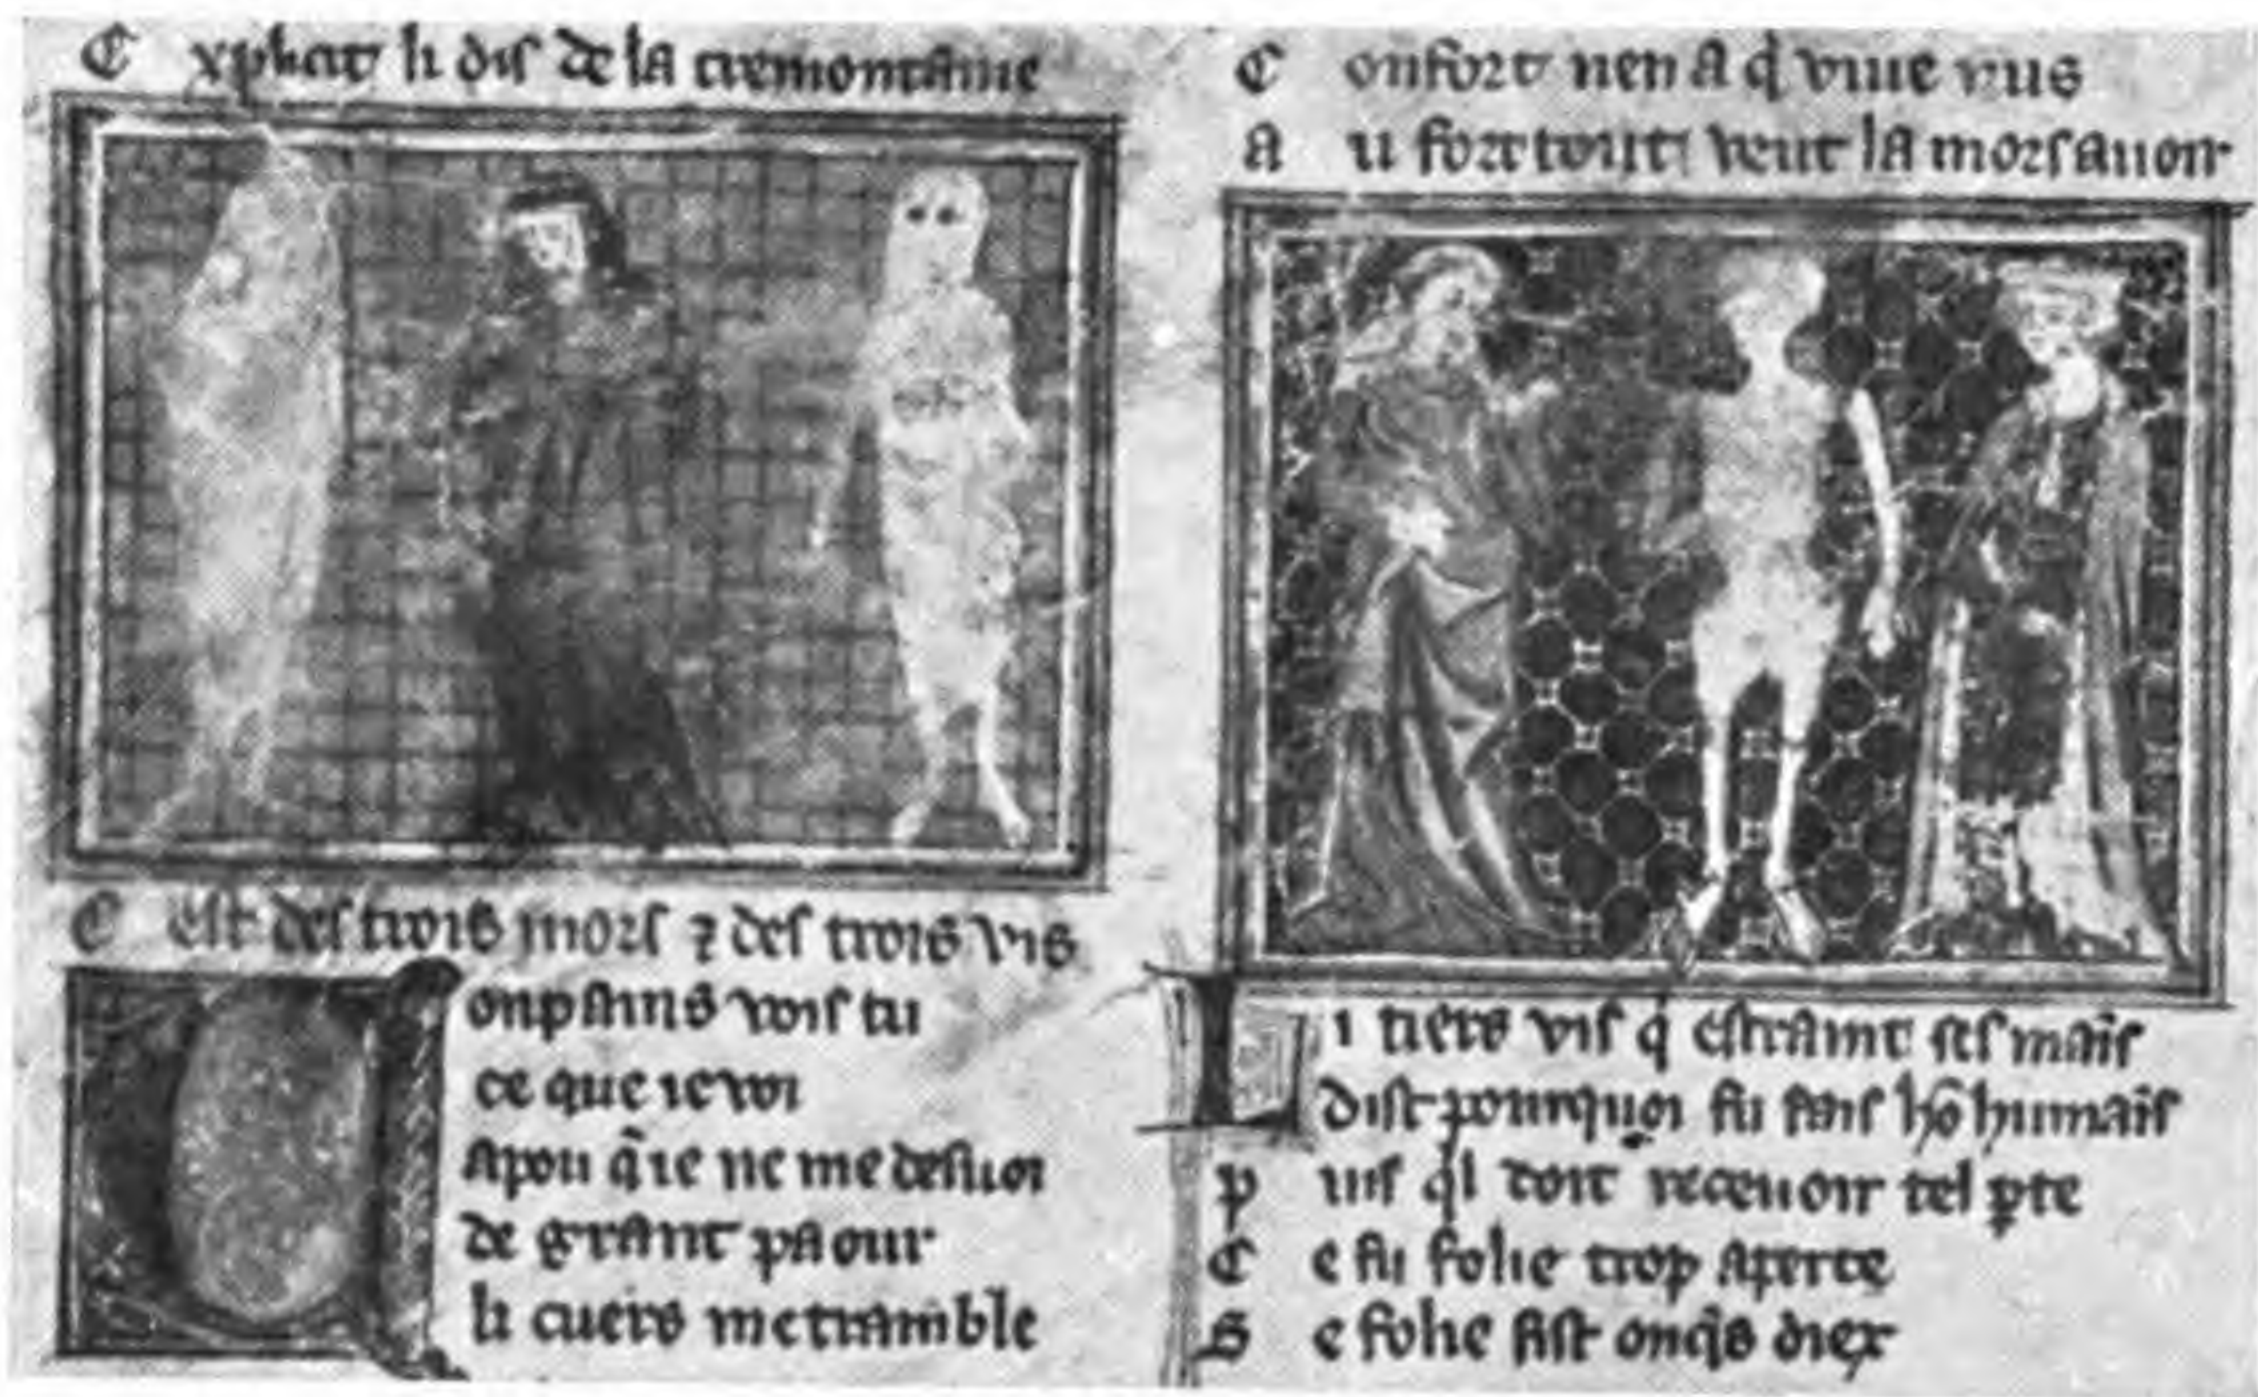 Explicit li dis de la tremontaine
C est des trois mors ⁊ des trois vis
Conpains vois tu
ce que ie voi
Apou q̃ ie ne me desuoi
de grant paour
li cuers me tramble
C onfort nen a q̓ viue nus
A u fort tout veut la mors auoir
Li tiers vis q̓ estraint ses mais̃
dist pourquoi fu fais hõ humais̃
P uis q̓l doit receuoir tel ꝑte
C e fu folie trop aperte
S e folie fist onq̃s diex